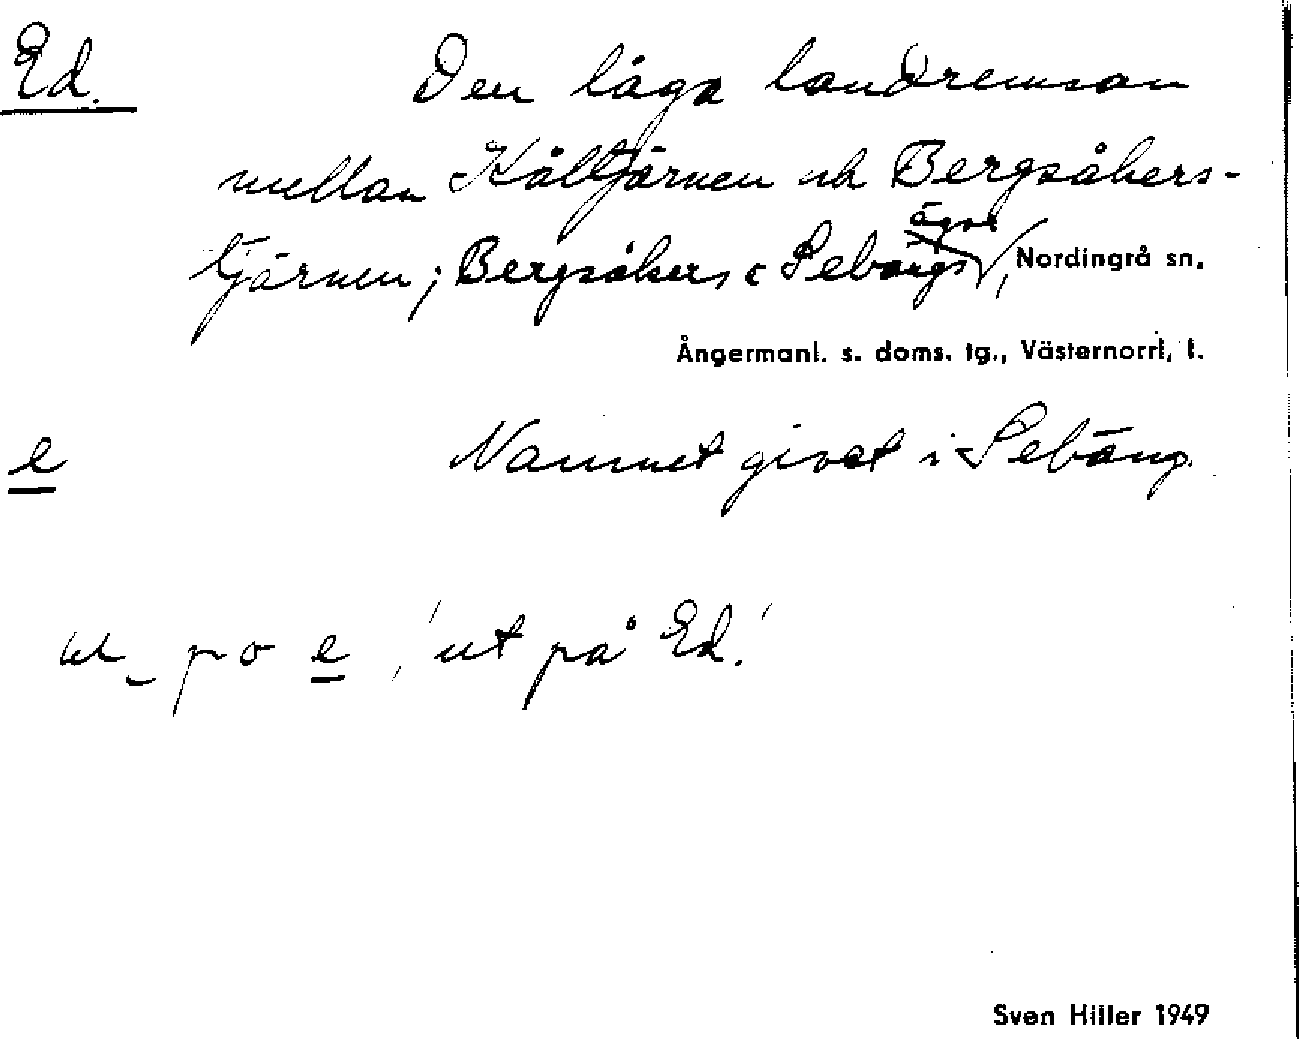 Ed.
Den låga landremsan
mellan Kåltjärnen och Bergsåkers-
tjärnen; Bergsåkers o Sebångs,
Nordingrå sn,
Ångermanl. s. doms. tg., Västernorrl. l.
e
Namnet givet i Sebång.
ut po e, 'ut på Ed.'
Sven Hiller 1949